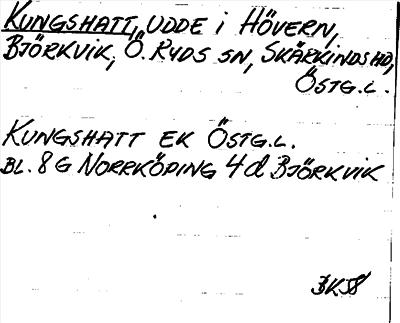 KUNGSHATT, UDDE I HÖVERN,
BJÖRKVIK, Ö. RYDS SN, SKÄRKINDS HD,
ÖSTG.L.
KUNGSHATT EK ÖSTG.L.
BL. 8G NORRKÖPING 4d BJÖRKVIK